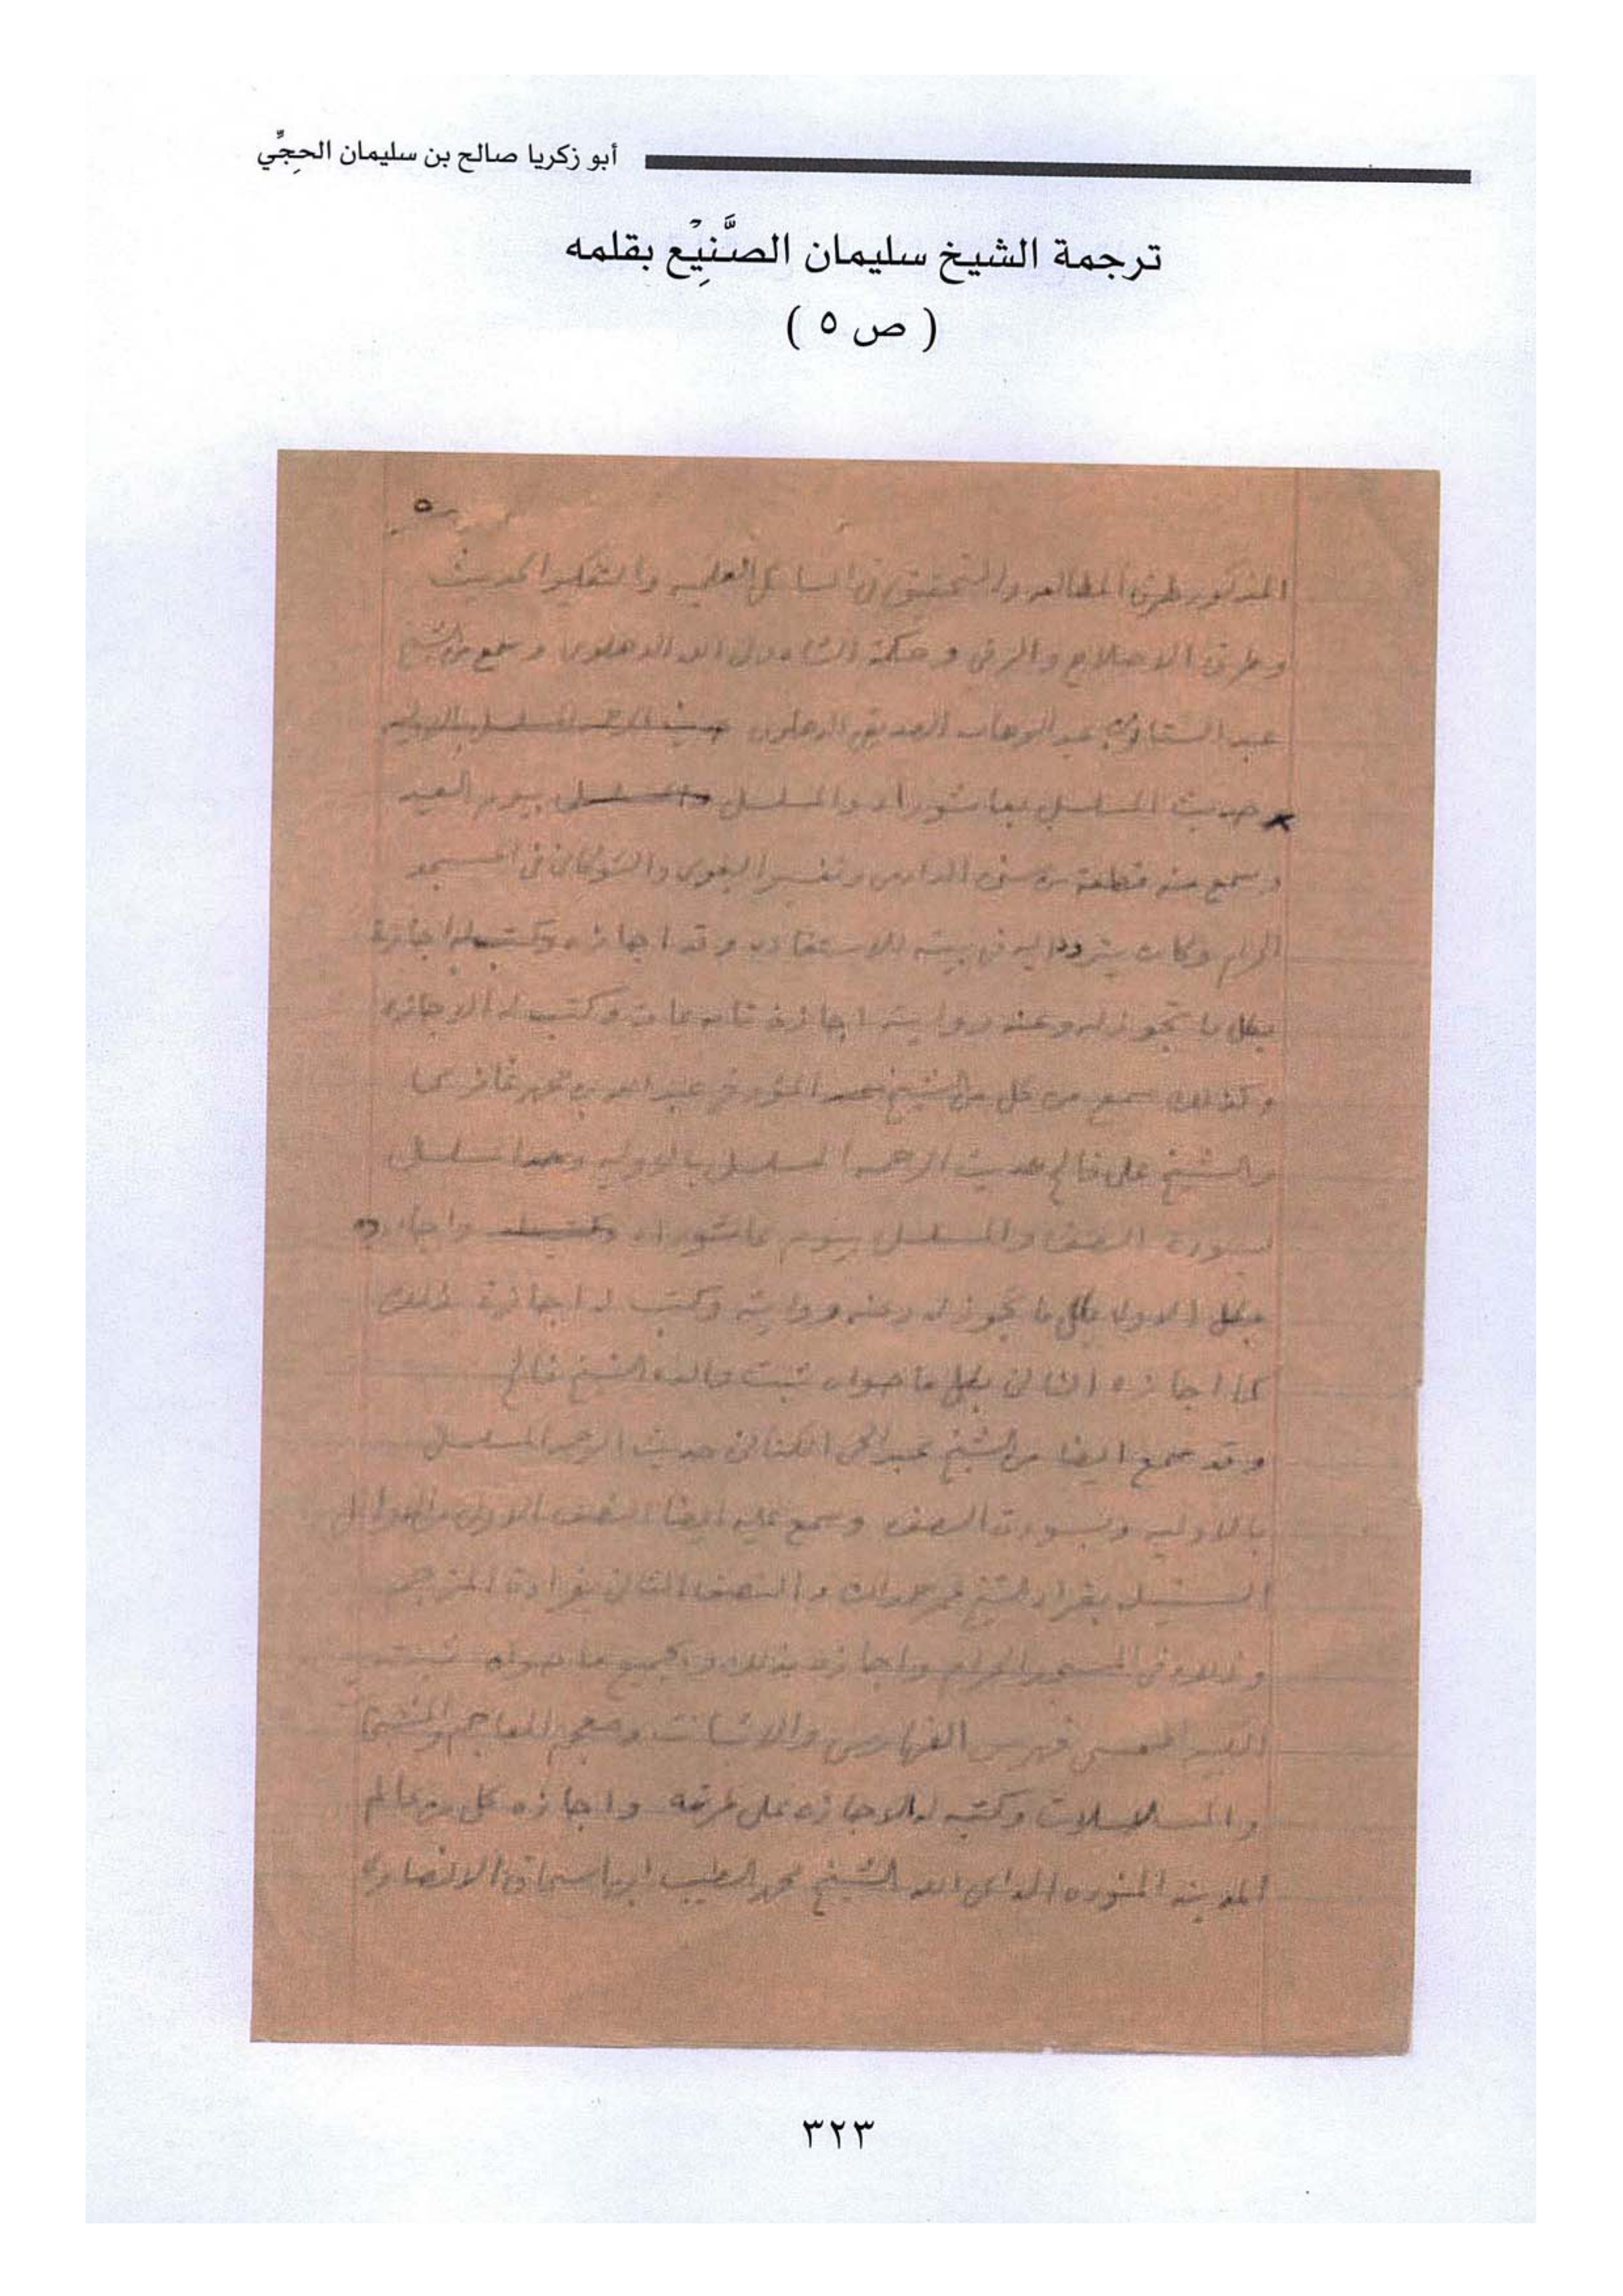 أبو زكريا صالح بن سليمان الحجِّي
ترجمة الشيخ سليمان الصَّنِيْع بقلمه
( ص ٥ )
٥
المذكور طرق المطالعه والتحقيق في المسائل العلميه والتفكير الحديث
وطرق الاصلاح والرقي وحكمة الشاه ولي الله الدهلوي وسمع من الشيخ
عبد الستار بن عبد الوهاب الصديقي الدهلوي حديث الرحمه المسلسل بالاوليه
حديث المسلسل بعاشوراء والمسلسل والمسلسل بيوم العيد
وسمع منه قطعة من سنن الدارمي وتفسير البغوي والشوكاني في المسجد
الحرام وكان يتردد اليه في بيته للاستفاده وقد اجازه وكتب له اجازة
بكل ما تجوز له وعنه روايته اجازة تامه عامه وكتب له الاجازه
وكذلك سمع من كل من الشيخ المؤرخ عبد الله بن محمد غازي
والشيخ علي فالح حديث الرحمه المسلسل بالاوليه
بسورة الصف والمسلسل بيوم عاشوراء واجازه
الاول بكل ما تجوز له وعنه روايته وكتب له اجازة بذلك
كما اجازه الثاني بكل ما حواه ثبت والده الشيخ فالح
وقد سمع ايضا من الشيخ عبد الحي الكتاني حديث الرحمه المسلسل
بالاوليه وبسورة الصف وسمع عليه ايضا النصف الاول من الاوائل
السنبليه بقراءة الشيخ عمر حمدان والنصف الثاني بقراءة المترجم
وذلك في المسجد الحرام واجازه بذلك وبجميع ما حواه ثبته
الكبير المسمى فهرس الفهارس والاثبات ومعجم المعاجم والمشيخات
والمسلسلات وكتب له الاجازه على طرته واجازه كل من عالم
المدينه المنوره الداعي الى الله الشيخ محمد الطيب بن اسحاق الانصاري
٣٢٣